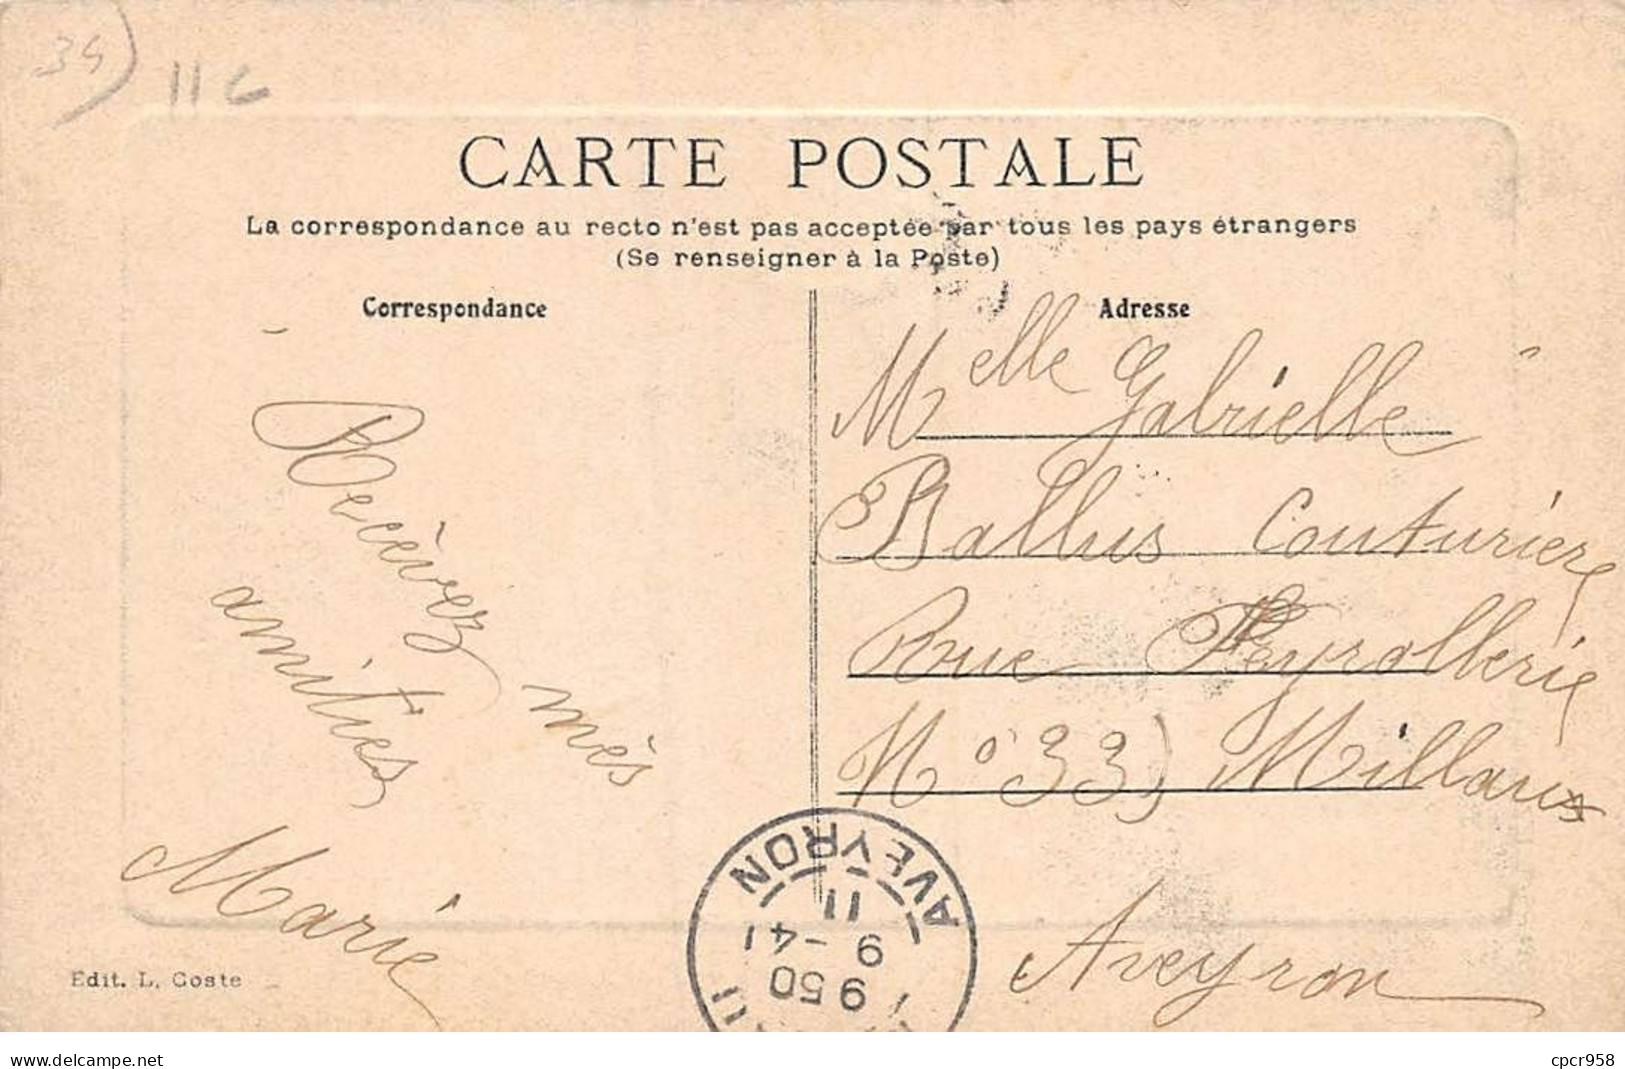 34)
11 6
CARTE POSTALE
La correspondance au recto n'est pas acceptée par tous les pays étrangers
(Se renseigner à la Poste)
Correspondance
Recèvez mès
amities
Marie
Edit. L. Coste
Adresse
Melle Gabrielle
Ballus Couturière
Rue Peyrollerie
No 33) Millau
Aveyron
AVEYRON
11
9 - 41
9 50
www.delcampe.net
cpcr958